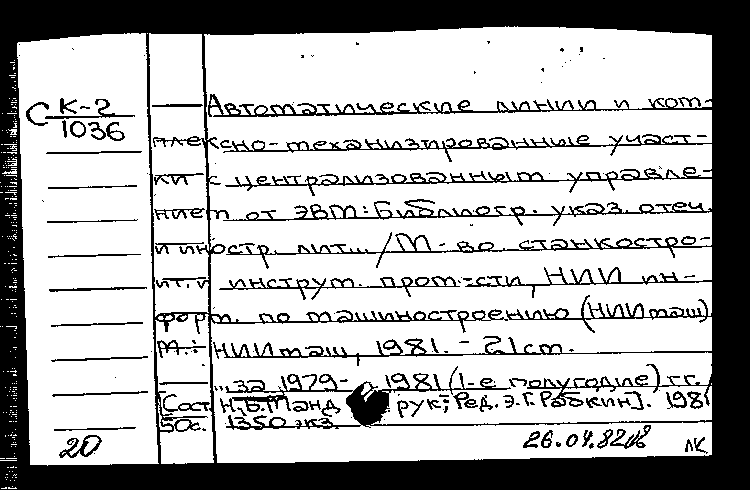 С К-2
1036
Автоматические линии и ком-
плексно-механизированные участ-
ки с централизованным управле-
нием от ЭВМ: Библиогр. указ. отеч.
и иностр. лит... / М-во станкостро-
ит. и инструм. пром-сти, НИИ ин-
форм. по машиностроению (НИИмаш).
М.: НИИмаш, 1981. - 21 см.
... за 1979- 1981 (1-е полугодие) гг. /
[Сост. Н.Б. Манд рук; Ред. Э.Г. Рабкин]. 1981
50с. 1350 экз.
20
26.04.82
ЛК